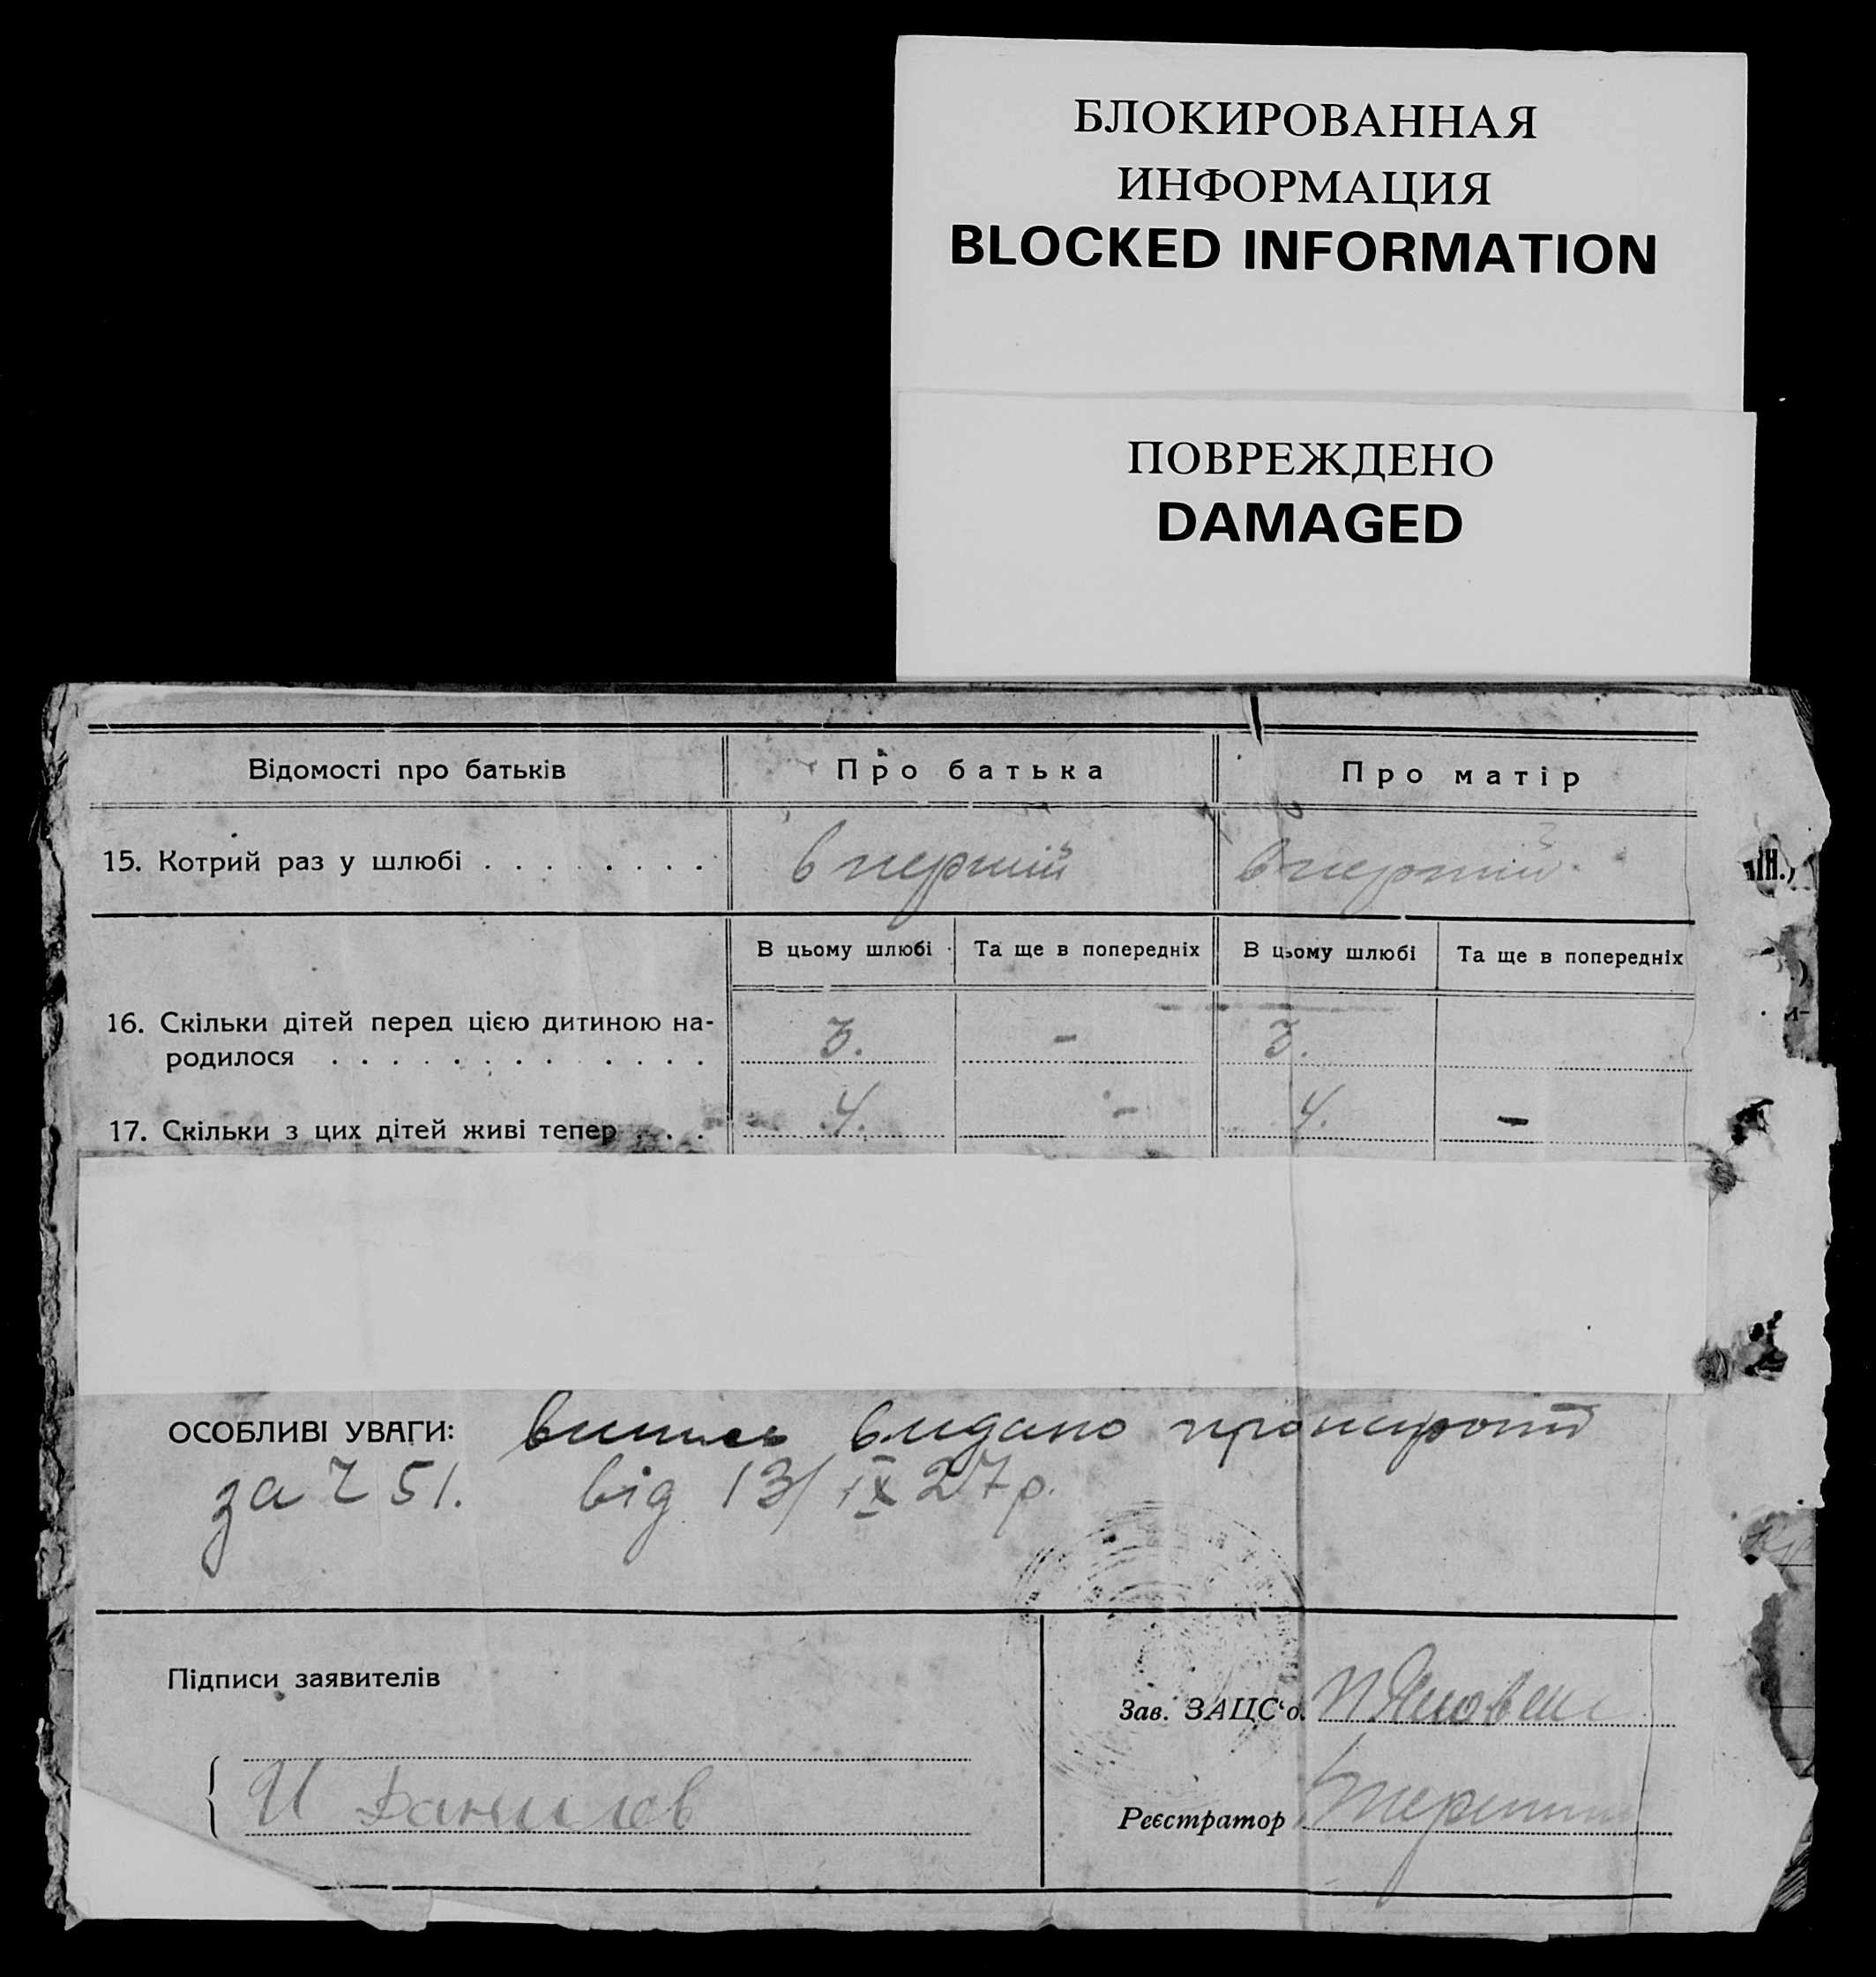 БЛОКИРОВАННАЯ
ИНФОРМАЦИЯ
BLOCKED INFORMATION
ПОВРЕЖДЕНО
DAMAGED
Відомості про батьків Про батька Про матір
15. Котрий раз у шлюбі . . . . . . . . в перший в перший
В цьому шлюбі Та ще в попередніх В цьому шлюбі Та ще в попередніх
16. Скільки дітей перед цією дитиною на-
родилося . . . . . . . . . . . . 3. - 3.
17. Скільки з цих дітей живі тепер . . . 4. - 4. -
ОСОБЛИВІ УВАГИ: видано
за 51. від 13/IX 27 р.
Підписи заявителів
Зав. ЗАЦС‘о.
И Данилов
Реєстратор